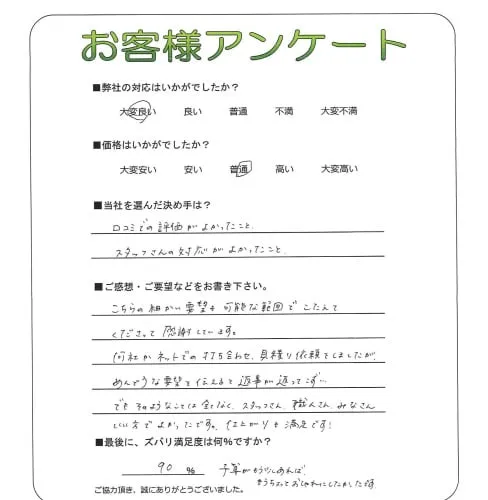 お客様アンケート
■弊社の対応はいかがでしたか?
大変良い 良い 普通 不満 大変不満
■価格はいかがでしたか?
大変安い 安い 普通 高い 大変高い
■当社を選んだ決め手は?
口コミでの評価がよかったこと、
スタッフさんの対応がよかったこと、
■ご感想・ご要望などをお書き下さい。
こちらの細かい要望も可能な範囲でこたえて
くださって感謝しています。
何社かネットでの打ち合わせ、見積り依頼をしましたが、
めんどうな要望を伝えると返事が返ってこず…
でもそのようなことは全くなく、スタッフさん、職人さん、みなさん
いい方でよかったです。仕上がりも満足です!
■最後に、ズバリ満足度は何%ですか?
90 %
予算がもう少しあれば、
もうちょっとおしゃれにしたかったです
ご協力頂き、誠にありがとうございました。